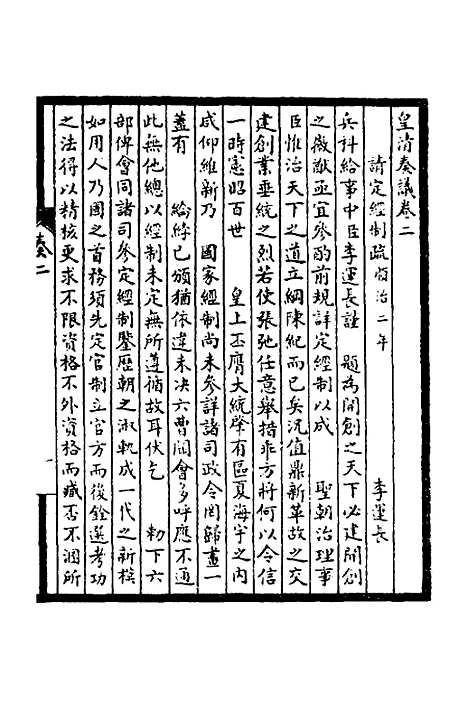 皇清奏議卷二
請定經制疏順治二年 李運長
兵科給事中臣李運長謹 題為開創之天下必建開創
之徽猷亟宜參酌前規詳定經制以成 聖朝治理事
臣惟治天下之道立綱陳紀而已矣況值鼎新革故之交
建創業垂統之烈若使張弛任意舉措乖方將何以令信
一時憲昭百世 皇上丕膺大統肇有區夏海宇之內
咸仰維新乃 國家經制尚未參詳諸司政令罔歸畫一
蓋有 綸綍已頒猶依違未決六曹關會多呼應不通
此無他總以經制未定無所遵循故耳伏乞 勅下六
部俾會同諸司參定經制鑒歷朝之淑軌成一代之新模
如用人乃國之首務須先定官制立官方而後銓選考功
之法得以精核更求不限資格不外資格而臧否不溷所
奏二
一